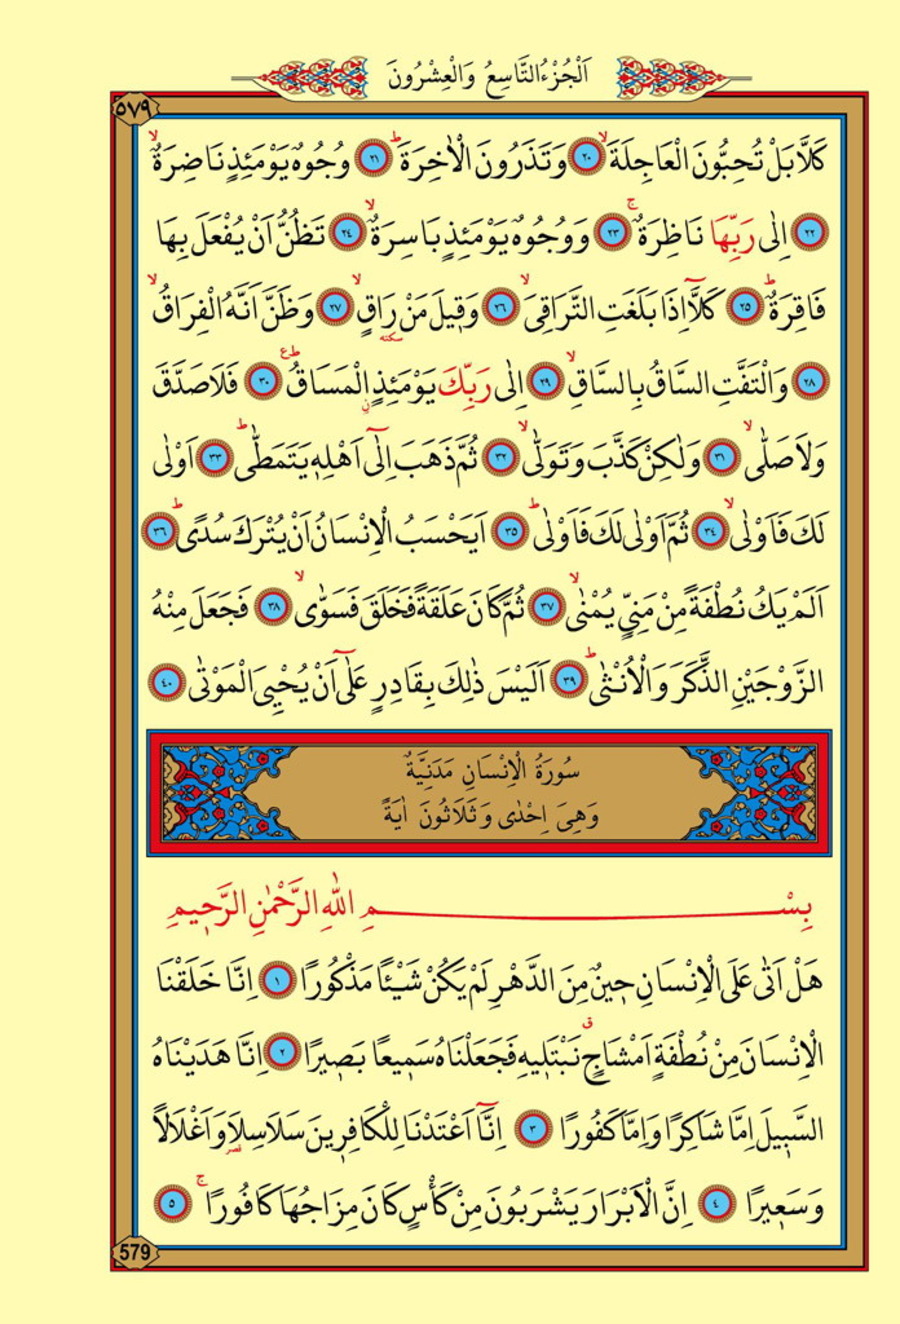 اَلْجُزْءُ التَّاسِعُ وَالْعِشْرُونَ
٥٧٩
كَلَّا بَلْ تُحِبُّونَ الْعَاجِلَةَۙ ٢٠ وَتَذَرُونَ الْاٰخِرَةَۜ ٢١ وُجُوهٌ يَوْمَئِذٍ نَاضِرَةٌۙ
٢٢ اِلٰى رَبِّهَا نَاظِرَةٌۚ ٢٣ وَوُجُوهٌ يَوْمَئِذٍ بَاسِرَةٌۙ ٢٤ تَظُنُّ اَنْ يُفْعَلَ بِهَا
فَاقِرَةٌۜ ٢٥ كَلَّٓا اِذَا بَلَغَتِ التَّرَاقِيَۙ ٢٦ وَق۪يلَ مَنْ رَاقٍۙ ٢٧ وَظَنَّ اَنَّهُ الْفِرَاقُۙ
سكته
٢٨ وَالْتَفَّتِ السَّاقُ بِالسَّاقِۙ ٢٩ اِلٰى رَبِّكَ يَوْمَئِذٍ الْمَسَاقُۜ ع ٣٠ فَلَا صَدَّقَ
وَلَا صَلّٰىۙ ٣١ وَلٰكِنْ كَذَّبَ وَتَوَلّٰىۙ ٣٢ ثُمَّ ذَهَبَ اِلٰٓى اَهْلِه۪ يَتَمَطّٰىۜ ٣٣ اَوْلٰى
لَكَ فَاَوْلٰىۙ ٣٤ ثُمَّ اَوْلٰى لَكَ فَاَوْلٰىۜ ٣٥ اَيَحْسَبُ الْاِنْسَانُ اَنْ يُتْرَكَ سُدًىۜ ٣٦
اَلَمْ يَكُ نُطْفَةً مِنْ مَنِيٍّ يُمْنٰىۙ ٣٧ ثُمَّ كَانَ عَلَقَةً فَخَلَقَ فَسَوّٰىۙ ٣٨ فَجَعَلَ مِنْهُ
الزَّوْجَيْنِ الذَّكَرَ وَالْاُنْثٰىۜ ٣٩ اَلَيْسَ ذٰلِكَ بِقَادِرٍ عَلٰٓى اَنْ يُحْيِيَ الْمَوْتٰى ٤٠
سُورَةُ الْاِنْسَانِ مَدَنِيَّةٌ
وَهِيَ اِحْدٰى وَثَلَاثُونَ اٰيَةً
بِسْمِ اللّٰهِ الرَّحْمٰنِ الرَّح۪يمِ
هَلْ اَتٰى عَلَى الْاِنْسَانِ ح۪ينٌ مِنَ الدَّهْرِ لَمْ يَكُنْ شَيْـًٔا مَذْكُورًا ١ اِنَّا خَلَقْنَا
الْاِنْسَانَ مِنْ نُطْفَةٍ اَمْشَاجٍۗ نَبْتَل۪يهِ فَجَعَلْنَاهُ سَم۪يعًا بَص۪يرًا ٢ اِنَّا هَدَيْنَاهُ
السَّب۪يلَ اِمَّا شَاكِرًا وَاِمَّا كَفُورًا ٣ اِنَّٓا اَعْتَدْنَا لِلْكَافِر۪ينَ سَلَاسِلَا۬ وَاَغْلَالًا
قصر
وَسَع۪يرًا ٤ اِنَّ الْاَبْرَارَ يَشْرَبُونَ مِنْ كَأْسٍ كَانَ مِزَاجُهَا كَافُورًاۚ ٥
579